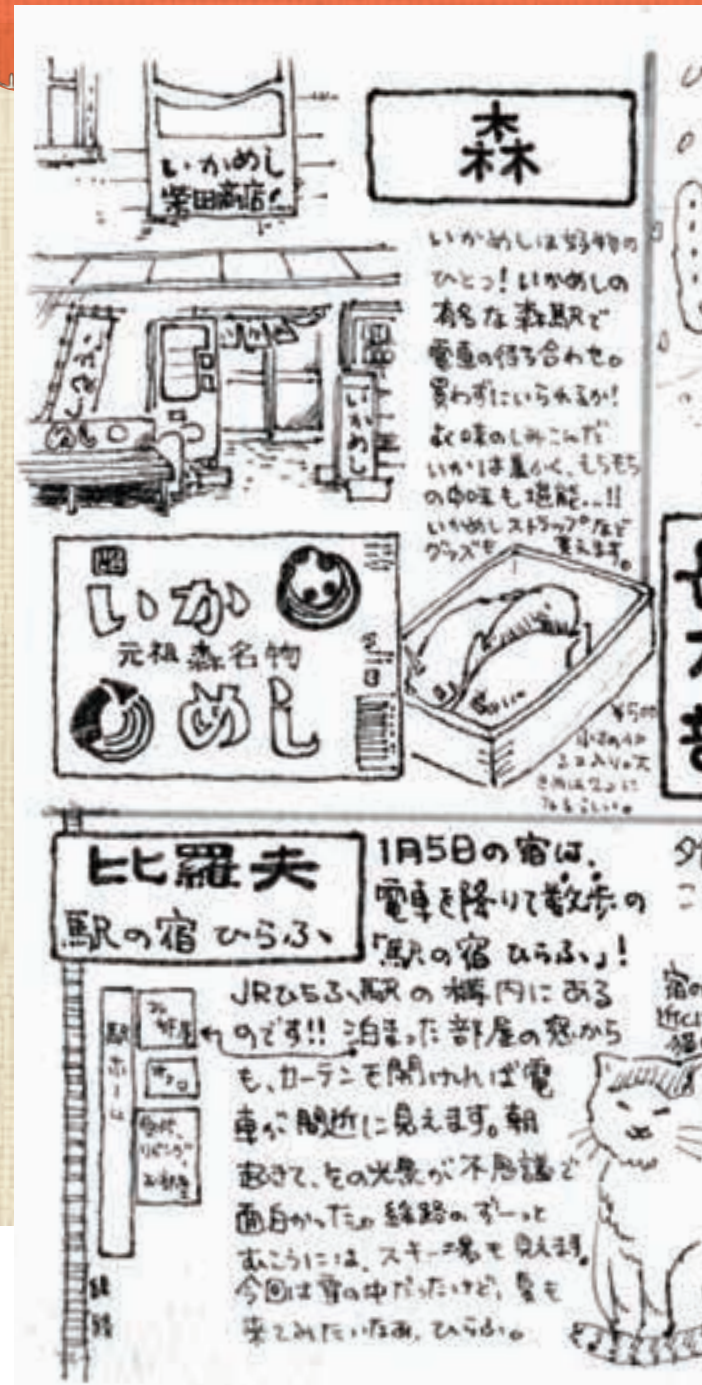 いかめし
柴田商店
森
いかめしは好物の
ひとつ!いかめしの
有名な森駅で
電車の待ち合わせ。
買わずにいられるか!
よく味のしみこんだ
いかは柔く、もちもち
の中味も堪能...!!
いかめしストラップなど
グッズも買えます。
いかめし
いか
元祖森名物
めし
比羅夫
駅の宿 ひらふ
1月5日の宿は、
電車を降りて散歩の
「駅の宿 ひらふ」!
JRひらふ駅の構内にある
のです!!泊まった部屋の窓から
も、カーテンを開ければ電
車が間近に見えます。朝
起きて、その光景が不思議で
面白かった。線路のずーっと
むこうには、スキー場も見えます。
今回は雪の中だったけど、夏も
来てみたいなぁ、ひらふ。
駅ホーム
お部屋
受付、
リビング、
お部屋
線路